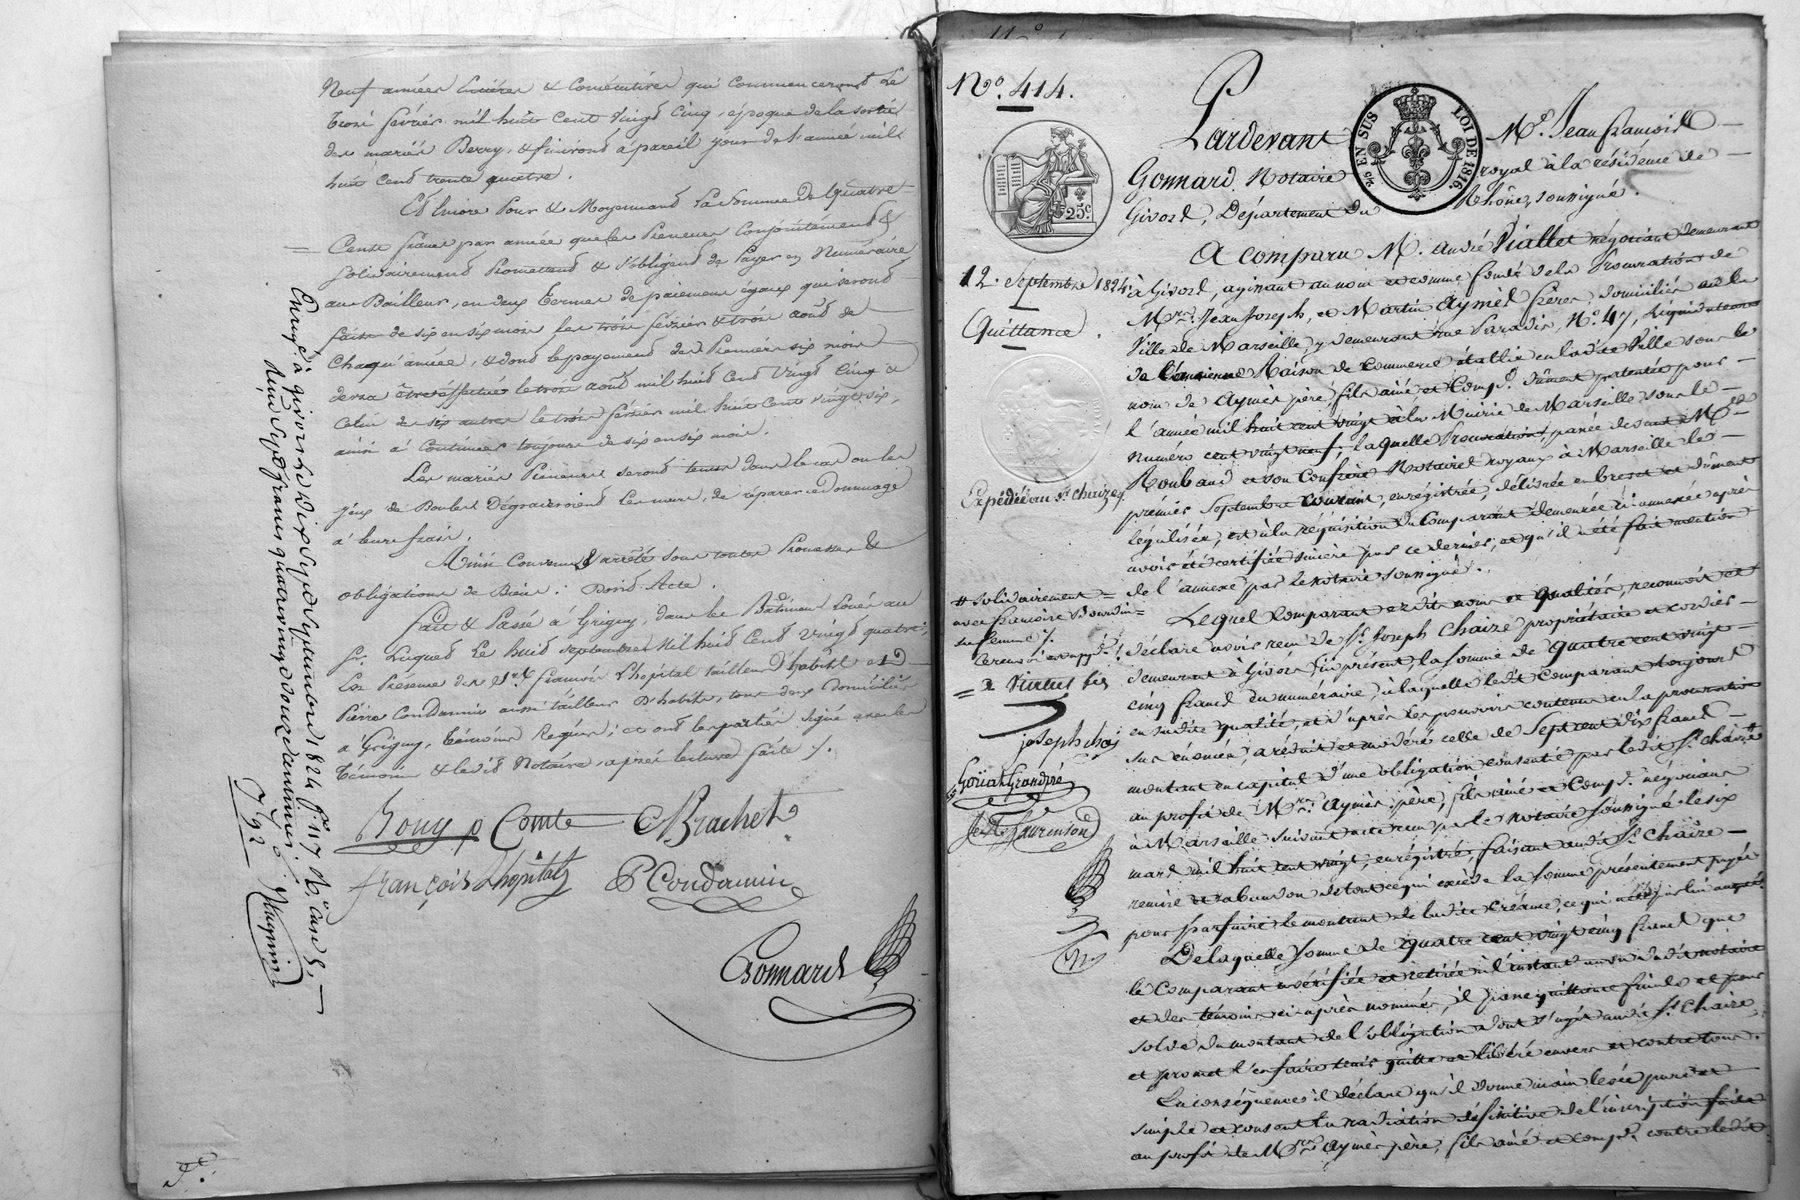 Neuf années entières & consécutives qui commenceront le
trois février mil huit cent vingt cinq, époque de la sortie
des mariés Berry, & finiront à pareil jour de l'année mil
huit cent trente quatre.
Et Encore Pour & Moyennant La Somme de quatre
Cents francs par année que les Preneurs Conjointement &
solidairement Promettent & s'obligent de Payer en Numéraire
au Bailleur, en deux termes de paiement égaux qui seront
faits de six en six mois les trois février & trois août de
Chaqu'année, & dont le payement des Premiers six mois
devra être effectué le trois août mil huit cent vingt cinq &
celui de six autres le trois février mil huit cent vingt six,
ainsi à Continuer toujours de six en six mois.
Les mariés Preneurs seront tenus dans le cas ou les
jeux de Boules Dégraderoient les murs, de réparer ce dommage
à leurs frais.
Ainsi Convenu & arrêté sous toutes Promesses &
obligations de Biens : Dont Acte.
fait & Passé à Grigny, dans les Bâtiments Loués au
Sr. Luquet Le huit septembre Mil huit Cent Vingt quatre,
En Présence des Srs. francois Lhopital tailleur d'habits et
Pierre Condamin aussi tailleur D'habits, tous deux Domiciliés
à Grigny, témoins Requis ; et ont les parties signé avec les
témoins & ledit Notaire, après lecture faite ./.
Bouy p Comte CBrachet
françois Lhôpital P Condamin
Gonnard
Enregé. à Givors le Dix Sept Septembre 1824 fo. 117 Ro. case 5,
Reçu Sept francs quatrevingt douze centimes.
7 92
Magnin
No. 414.
Pardevant Me. Jean françois
Gonnard Notaire royal à la résidence de
Givors, Département du Rhône, soussigné.
25c
EN SUS
LOI DE 1816.
12. Septembre 1824.
Quittance.
Expédiée au Sr. Chaize
A Comparu M. André Viallet négociant demeurant
à Givors, agissant au nom et comme fondé de la Procuration de
Mrs. Jean Joseph, et Martin Aymès frères, domiciliés en la
Ville de Marseille, y demeurant rue Paradis, No. 47, liquidateurs
de l'ancienne Maison de Commerce établie en ladite Ville sous le
nom de Aymès père, fils aîné et Compe. dûment patentée pour
l'année mil huit cent vingt à la Mairie de Marseille sous le
numéro cent vingt neuf, laquelle Procuration, passée devant Me.
Roubaud et son Confrère Notaires royaux à Marseille le
premier Septembre courant, enregistrée, délivrée en brevet et dûment
légalisée, est à la réquisition du Comparant demeurée ci annexée après
avoir été certifiée sincère par ce dernier, et qu'il a été fait mention
de l'annexe par le notaire soussigné.
Lequel Comparant es dits noms et qualités, reconnoit et
déclare avoir reçu de Sr. Joseph Chaize propriétaire et cordier
demeurant à Givors ici présent, la somme de quatre cent vingt
cinq francs en numéraire, à laquelle ledit Comparant toujours
en sa dite qualité, et d'après les pouvoirs contenus en la procuration
sus énoncée, a réduit et modéré celle de Sept cent dix francs
montant en capital d'une obligation consentie par ledit Sr. Chaize
au profit de Mrs. Aymès père, fils aîné et Compe. négocians
à Marseille suivant acte reçu par le notaire soussigné le six
mars mil huit cent vingt, enregistré, faisant audit Sr. Chaize
remise et abandon de tout ce qui excède la somme présentement payée
pour parfaire le montant de ladite créance, ce qui est par lui accepté.
De laquelle somme de quatre cent vingt cinq francs que
le Comparant a vérifiée et retirée à l'instant au vu dudit notaire
et des témoins ci après nommés, il passe quittance finale et pour
solde du montant de l'obligation dont s'agit audit Sr. Chaize
et promet l'en faire tenir quitte et libéré envers et contre tous.
En conséquence il déclare qu'il donne main levée pure et
simple et consent la radiation définitive de l'inscription faite
au profit de Mrs. Aymès père, fils aîné et compe. contre ledit
# solidairement
avec françoise Bourdin
sa femme ./.
= a Virtus bis
joseph chaiz
Goirat Grandpré